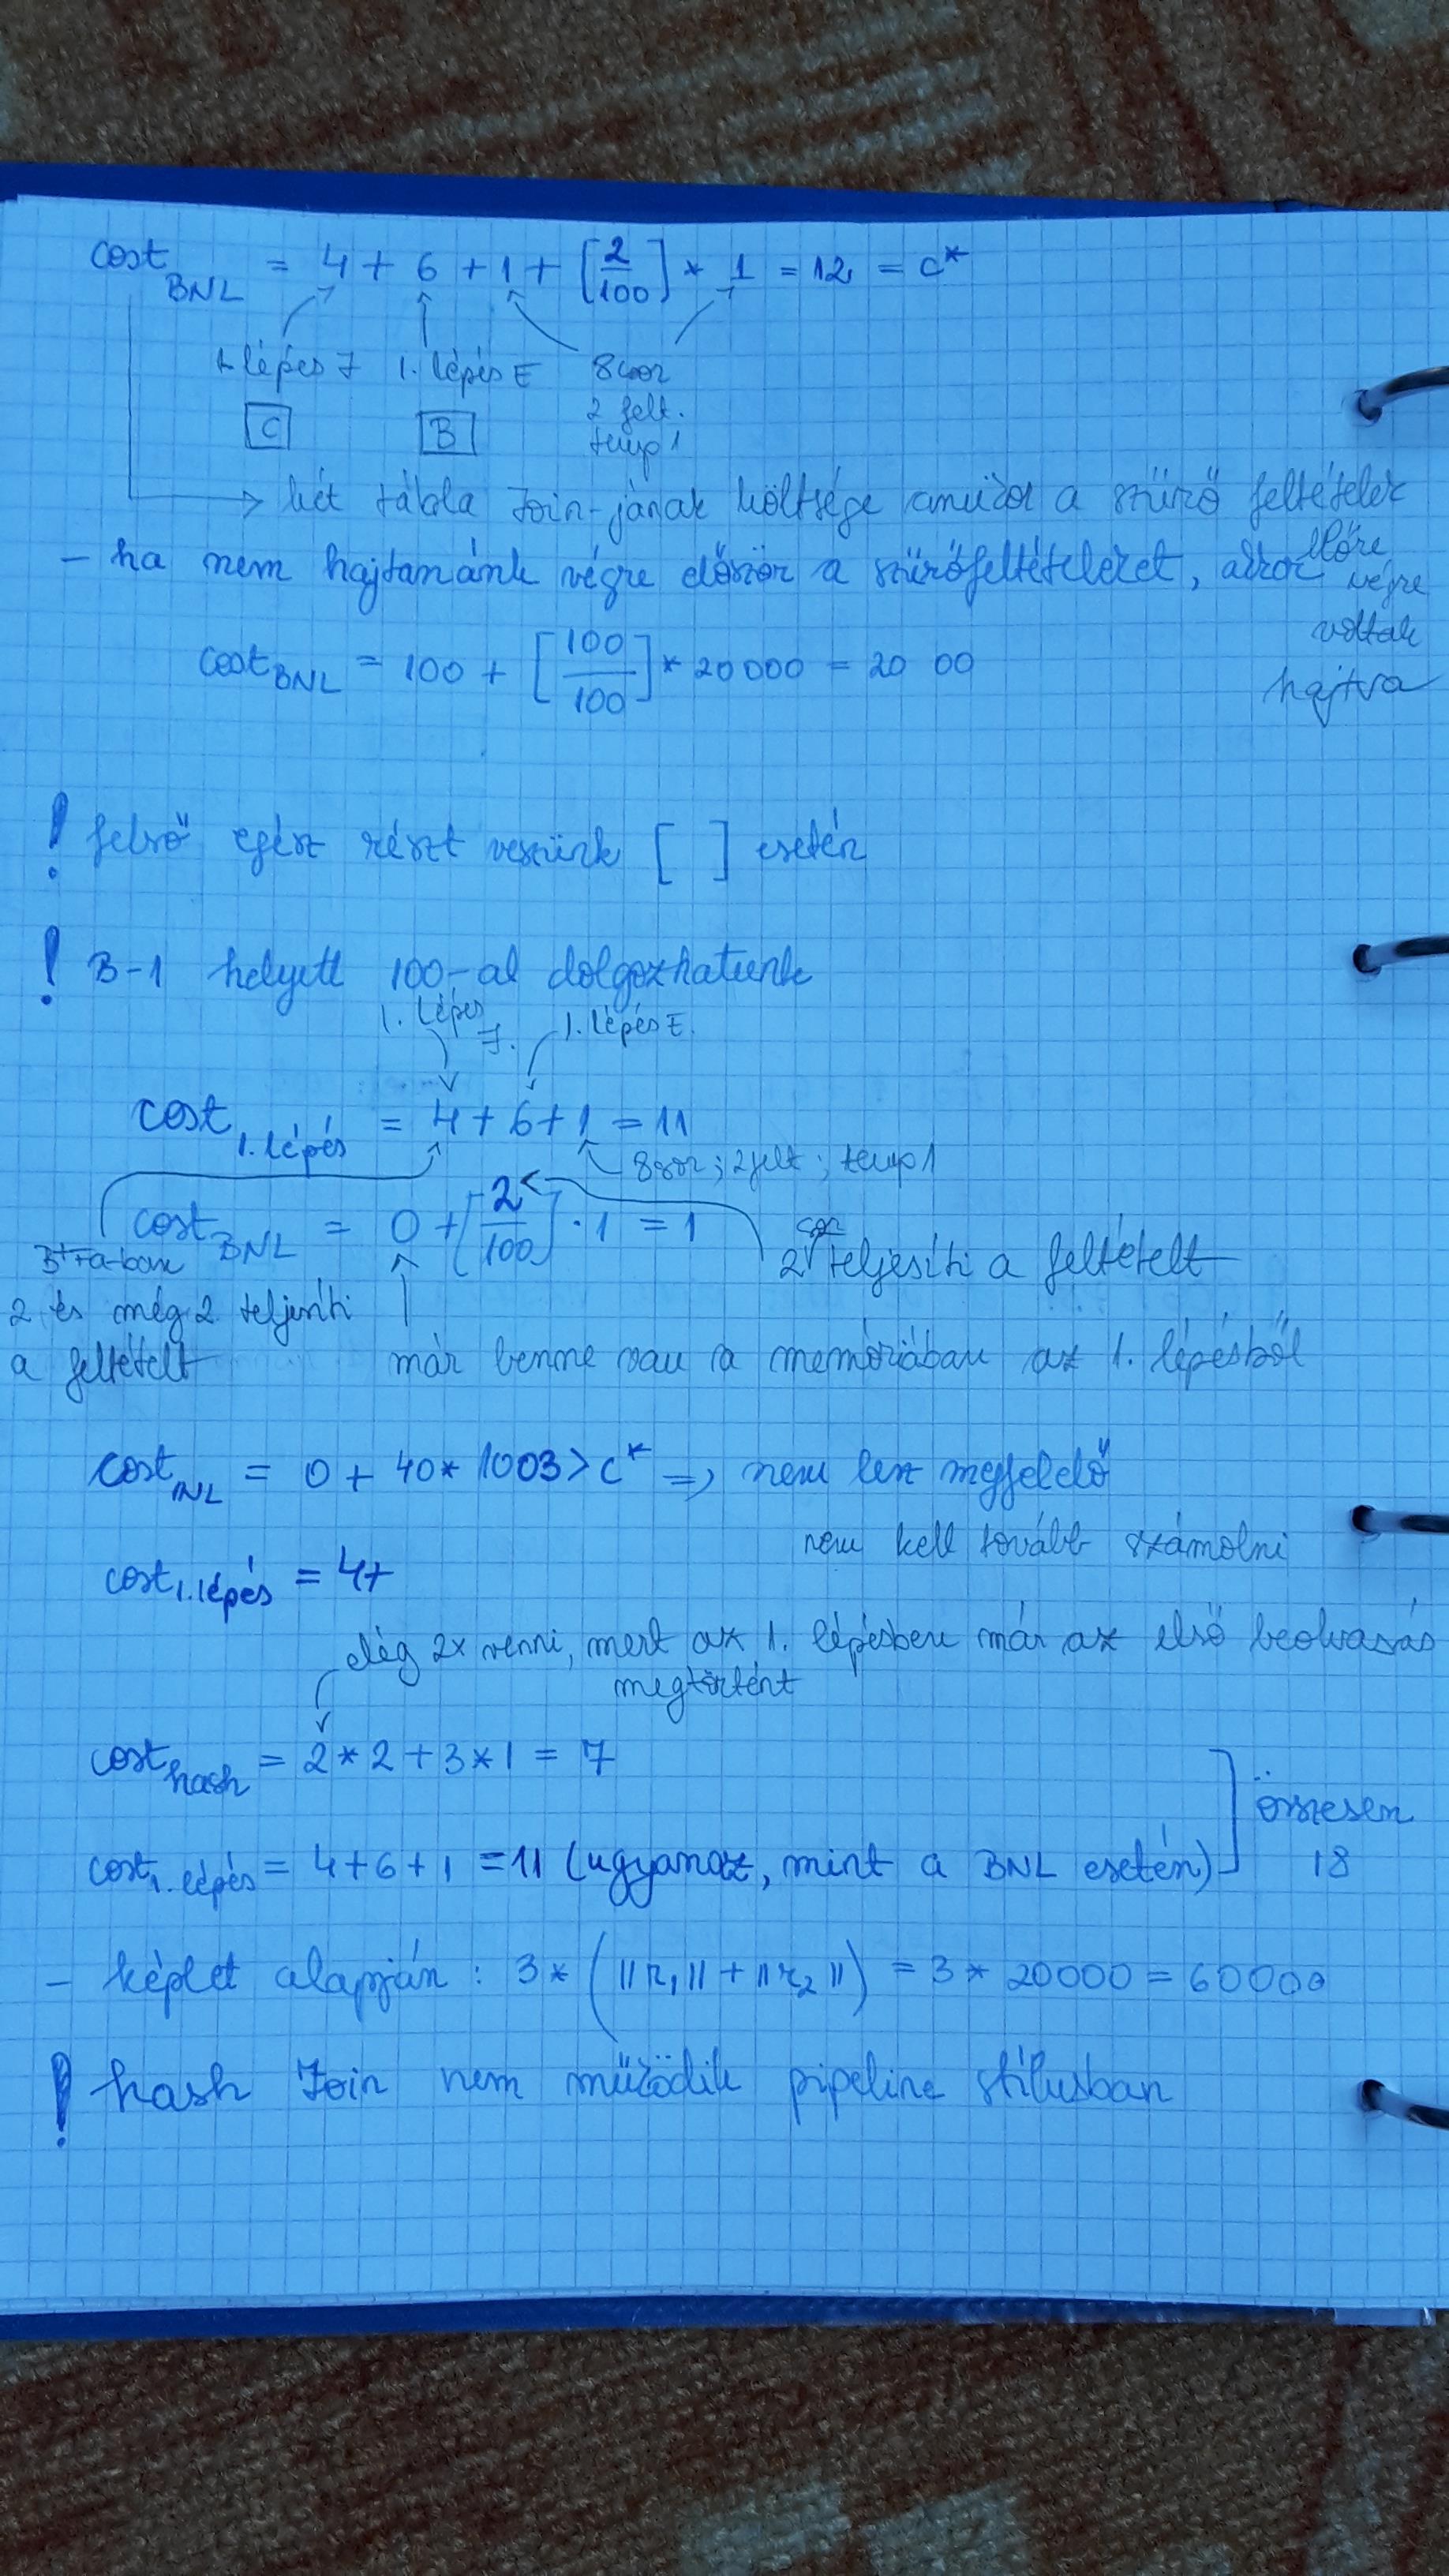 cost BNL = 4 + 6 + 1 + [2/100] * 1 = 12 = c*
1. lépés J 1. lépés E 8 sor
C B 2 felt.
temp 1
két tábla Join-jának költsége amikor a szűrő feltételek
előre végre voltak hajtva
- ha nem hajtanánk végre először a szűrőfeltételeket, akkor
cost BNL = 100 + [100/100] * 20000 = 20 00
! felső egész részt veszünk [ ] esetén
! B-1 helyett 100-al dolgozhatunk
1. lépés J. 1. lépés E.
cost 1. lépés = 4 + 6 + 1 = 11
8 sor; 2 felt; temp 1
cost BNL = 0 + [2/100] · 1 = 1
2 sor teljesíti a feltételt
B+fa-ban
2 és még 2 teljesíti
a feltételt
már benne van a memóriában az 1. lépésből
cost INL = 0 + 40 * 1003 > c* => nem lesz megfelelő
nem kell tovább számolni
cost 1. lépés = 4+
elég 2x venni, mert az 1. lépésben már az első beolvasás
megtörtént
cost hash = 2 * 2 + 3 * 1 = 7
összesen
cost 1. lépés = 4 + 6 + 1 = 11 (ugyanaz, mint a BNL esetén) 18
- képlet alapján : 3 * (||r1|| + ||r2||) = 3 * 20000 = 60000
! hash Join nem működik pipeline stílusban